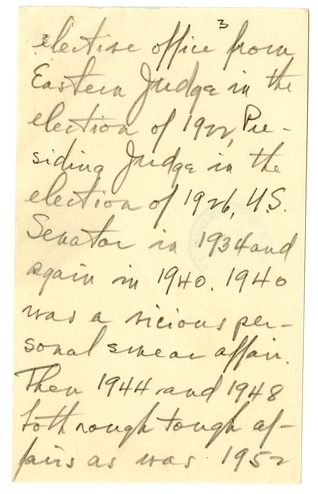 3
elective office from
Eastern Judge in the
election of 1922, Pre-
siding Judge in the
election of 1926, U.S.
Senator in 1934 and
again in 1940. 1940
was a vicious per-
sonal smear affair.
Then 1944 and 1948
both rough tough af-
fairs as was 1952